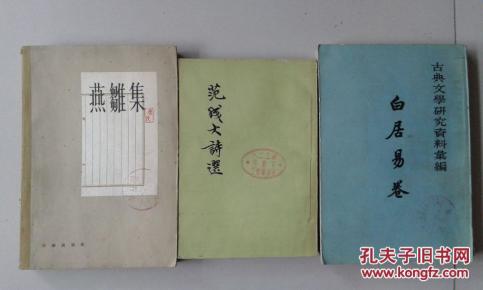 燕雛集
范成大詩選
古典文學研究資料彙編
白居易卷
孔夫子旧书网
www.kongfz.com